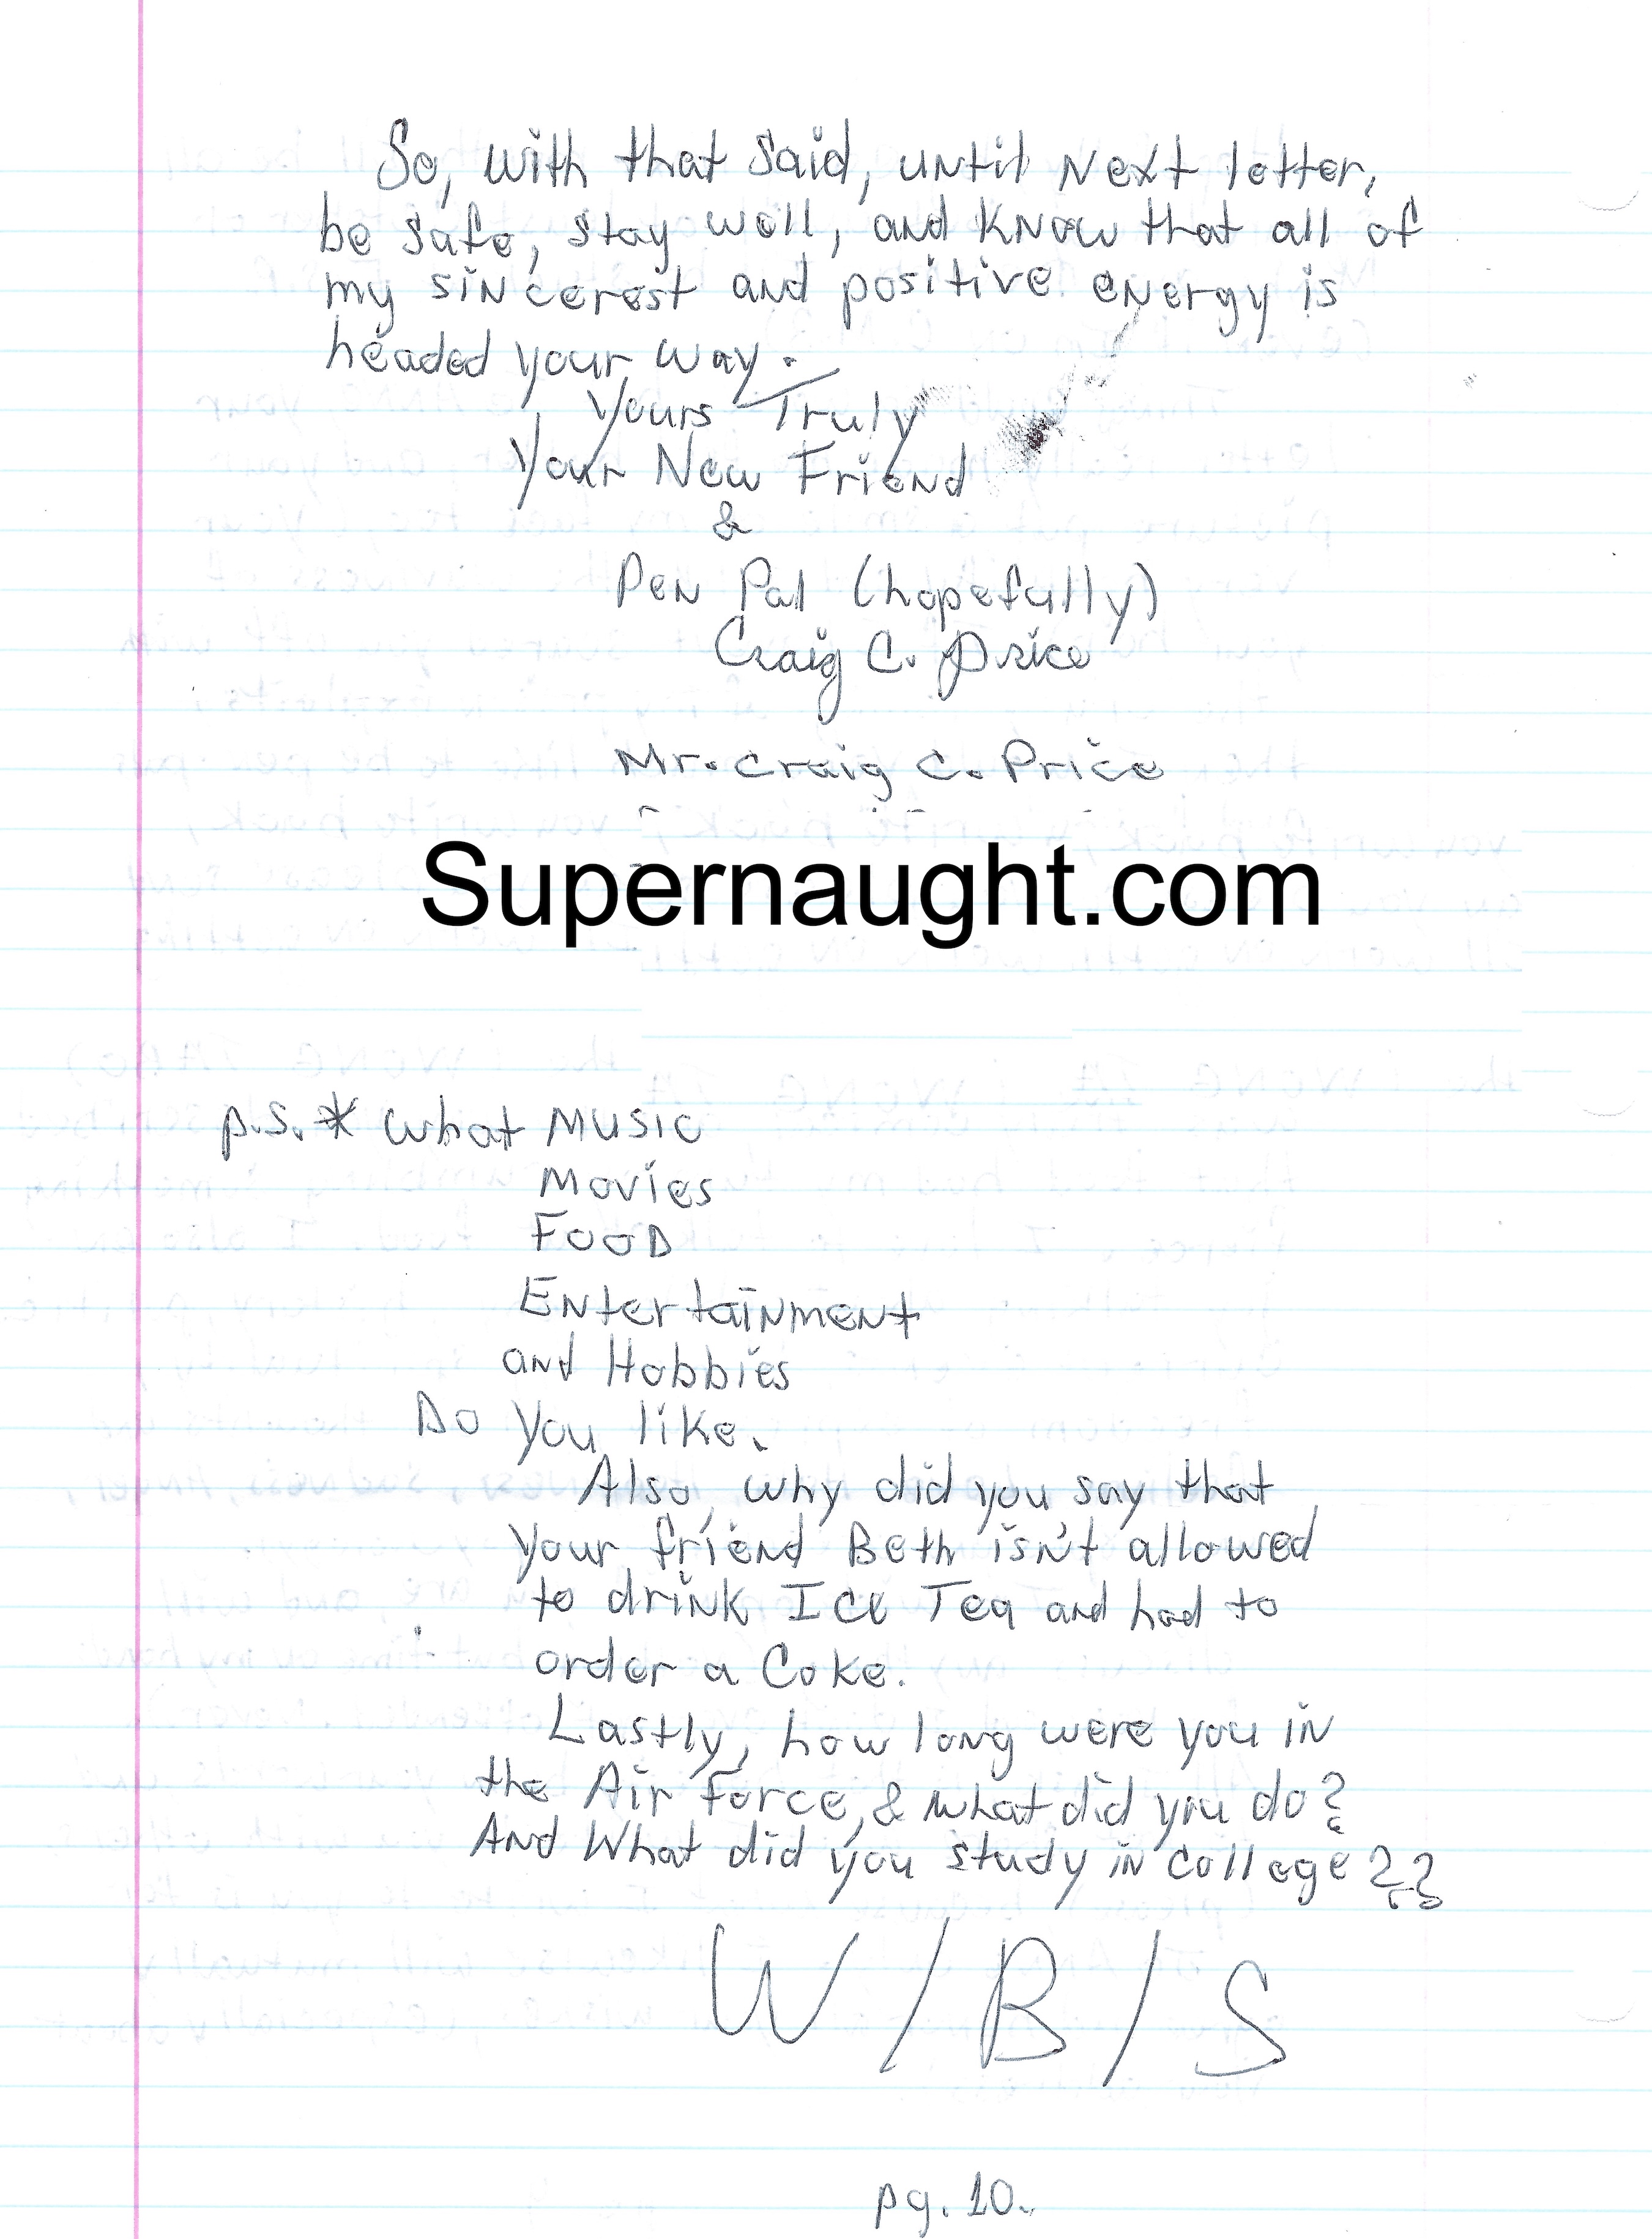 So, with that said, until Next letter,
be safe, stay well, and know that all of
my sincerest and positive energy is
headed your way.
Yours Truly
Your New Friend
&
Pen Pal (hopefully)
Craig C. Price
Mr. Craig C. Price
Supernaught.com
p.s.* What Music
Movies
Food
Entertainment
and Hobbies
Do you like.
Also, why did you say that
your friend Beth isn't allowed
to drink Ice Tea and had to
order a Coke.
Lastly, how long were you in
the Air Force, & what did you do?
And What did you study in college??
W/B/S
pg. 10.